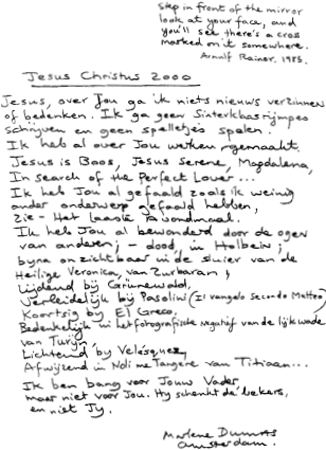 step in front of the mirror
look at your face, and
you'll see there's a cros
marked on it somewhere.
Arnulf Rainer. 1985.
Jesus Christus 2000
Jesus, over Jou ga ik niets nieuws verzinnen
of bedenken. Ik ga geen Sinterklaasrijmpjes
schrijven en geen spelletjes spelen.
Ik heb al over Jou werken gemaakt.
Jesus is Boos, Jesus Serene, Magdalena,
In search of the Perfect Lover...
Ik heb Jou al gefaald zoals ik weinig
ander onderwerp gefaald hebben,
zie - Het laaste Avondmaal.
Ik heb Jou al bewonderd door de ogen
van anderen; - dood, in Holbein;
byna onzichtbaar in de sluier van de
Heilige Veronica, van Zurbaran;
Lijdend bij Grünewald.
Verleidelijk bij Pasolini (Il vangelo Secondo Matteo)
Koortsig by El Greco.
Bedenkelijk in het fotografische negatief van de lijkwade
van Turijn,
Lichtend by Velásquez,
Afwijzend in Noli me Tangere van Titiaan...
Ik ben bang voor Jouw Vader,
maar niet voor Jou. Hy schenkt de bekers,
en niet Jy.
Marlene Dumas
Amsterdam.